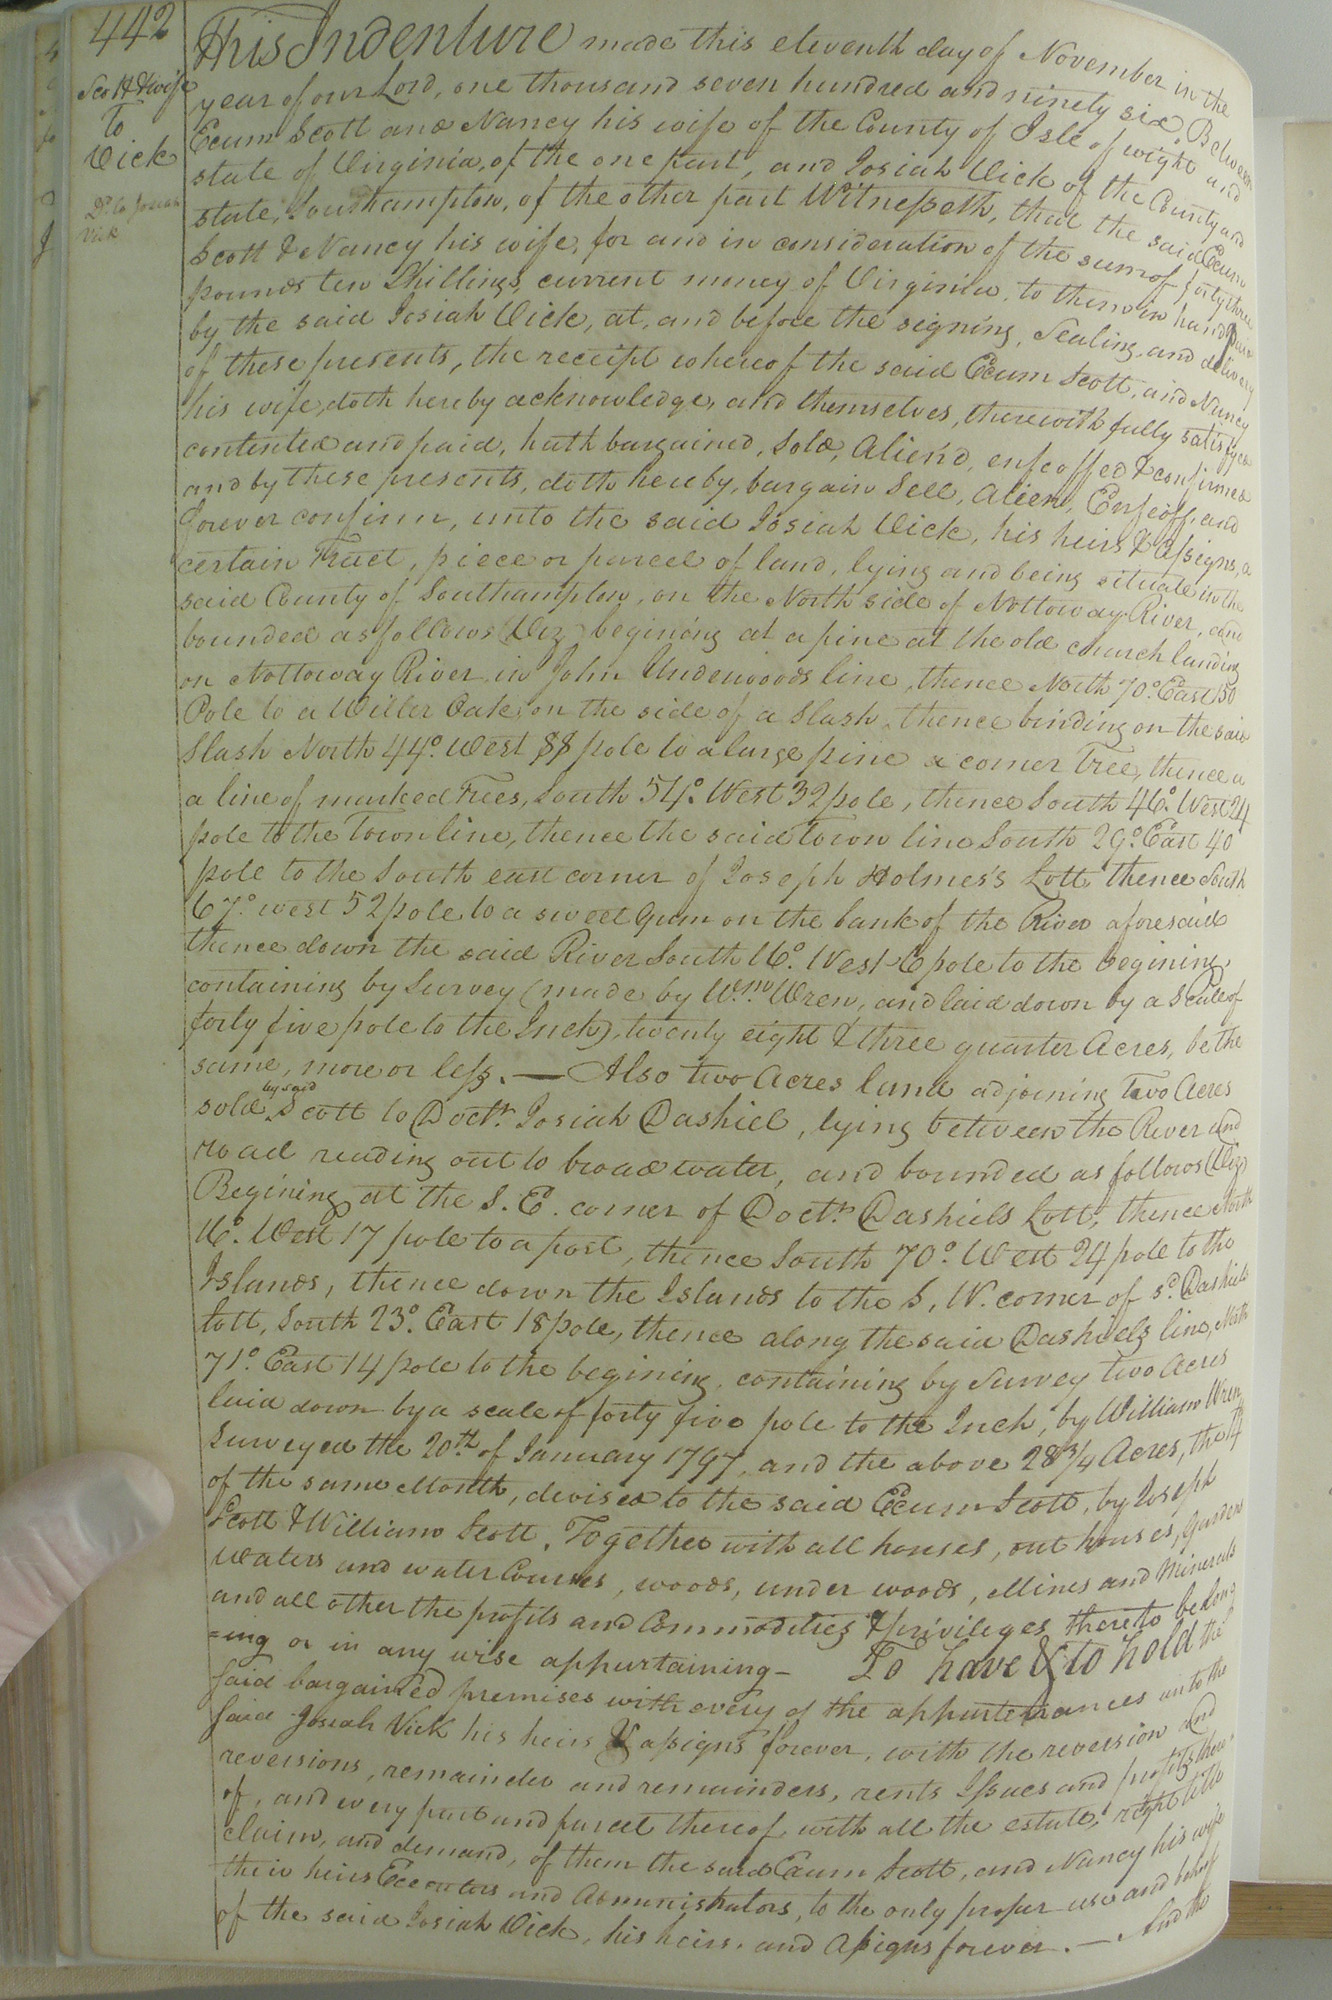 442
Scott & wife
To
Vick
Dd. to Josiah
Vick
This Indenture made this eleventh day of November in the
year of our Lord, one thousand seven hundred and ninety six, Between
Exum Scott and Nancy his wife of the County of Isle of wight and
state of Virginia, of the one part, and Josiah Vick of the County and
state, Southampton, of the other part Witnesseth, that the said Exum
Scott & Nancy his wife, for and in consideration of the sum of forty three
pounds ten Shillings, current money of Virginia, to them in hand paid
by the said Josiah Vick, at, and before the signing, Sealing, and delivery
of these presents, the receipt whereof the said Exum Scott, and Nancy
his wife, doth hereby acknowledge, and themselves, therewith fully satisfyed
contented and paid, hath bargained, Sold, Alien'd, enfeoffed & confirmed
and by these presents, doth hereby, bargain Sell, Alien, Enfeoff, and
forever confirm, unto the said Josiah Vick, his heirs & Assigns, a
certain Tract, piece or parcel of land, lying and being situate in the
said County of Southampton, on the North side of Nottoway River, and
bounded as follows (Viz) begining at a pine at the old church landing
on Nottoway River in John Underwoods line, thence North 70° East 50
Pole to a Willer Oak, on the side of a Slash, thence binding on the said
Slash North 44° West 88 pole to a large pine a corner Tree, thence a
a line of marked Trees, South 54° West 32 pole, thence South 46° West 24
pole to the Town line, thence the said Town line South 29° East 40
pole to the South east corner of Joseph Holmes's Lott thence South
67° west 52 pole to a sweet Gum on the bank of the River aforesaid
thence down the said River South 16° West 6 pole to the begining,
containing by Survey (made by Wm. Wren, and laid down by a Scale of
forty five pole to the Inch), twenty eight & three quarter Acres, be the
same, more or less. — Also two Acres land adjoining Two Acres
sold by said Scott to Doctr. Josiah Dashiel, lying between the River and
road reading out to broad water, and bounded as follows (Viz)
Begining at the S. E. corner of Doctr. Dashiels Lott, thence North
16° West 17 pole to a post, thence South 70° West 24 pole to the
Islands, thence down the Islands to the S, W. corner of sd. Dashiels
Lott, South 23° East 18 pole, thence along the said Dashiels line, North
71° East 14 pole to the begining, containing by Survey two Acres
laid down by a scale of forty five pole to the Inch, by William Wren,
Surveyed the 20th of January 1797, and the above 28 3/4 Acres, the 14
of the same Month, devised to the said Exum Scott, by Joseph
Scott & William Scott. Together with all houses, out houses, Gardens
Waters and water Courses, woods, under woods, Mines and Minerals
and all other the profits and Commodities & privileges thereto belong
=ing or in any wise appurtaining — To have & to hold the
said bargained premises with every of the appurtenances unto the
said Josiah Vick his heirs & assigns forever, with the reversion and
reversions, remainder and remainders, rents Issues and profits there=
of, and every part and parcel thereof, with all the estate, right title
claim, and demand, of them the said Exum Scott, and Nancy his wife
their heirs Executors and Administrators, to the only proper use and behoof
of the said Josiah Vick, his heirs, and Assigns forever. — And the